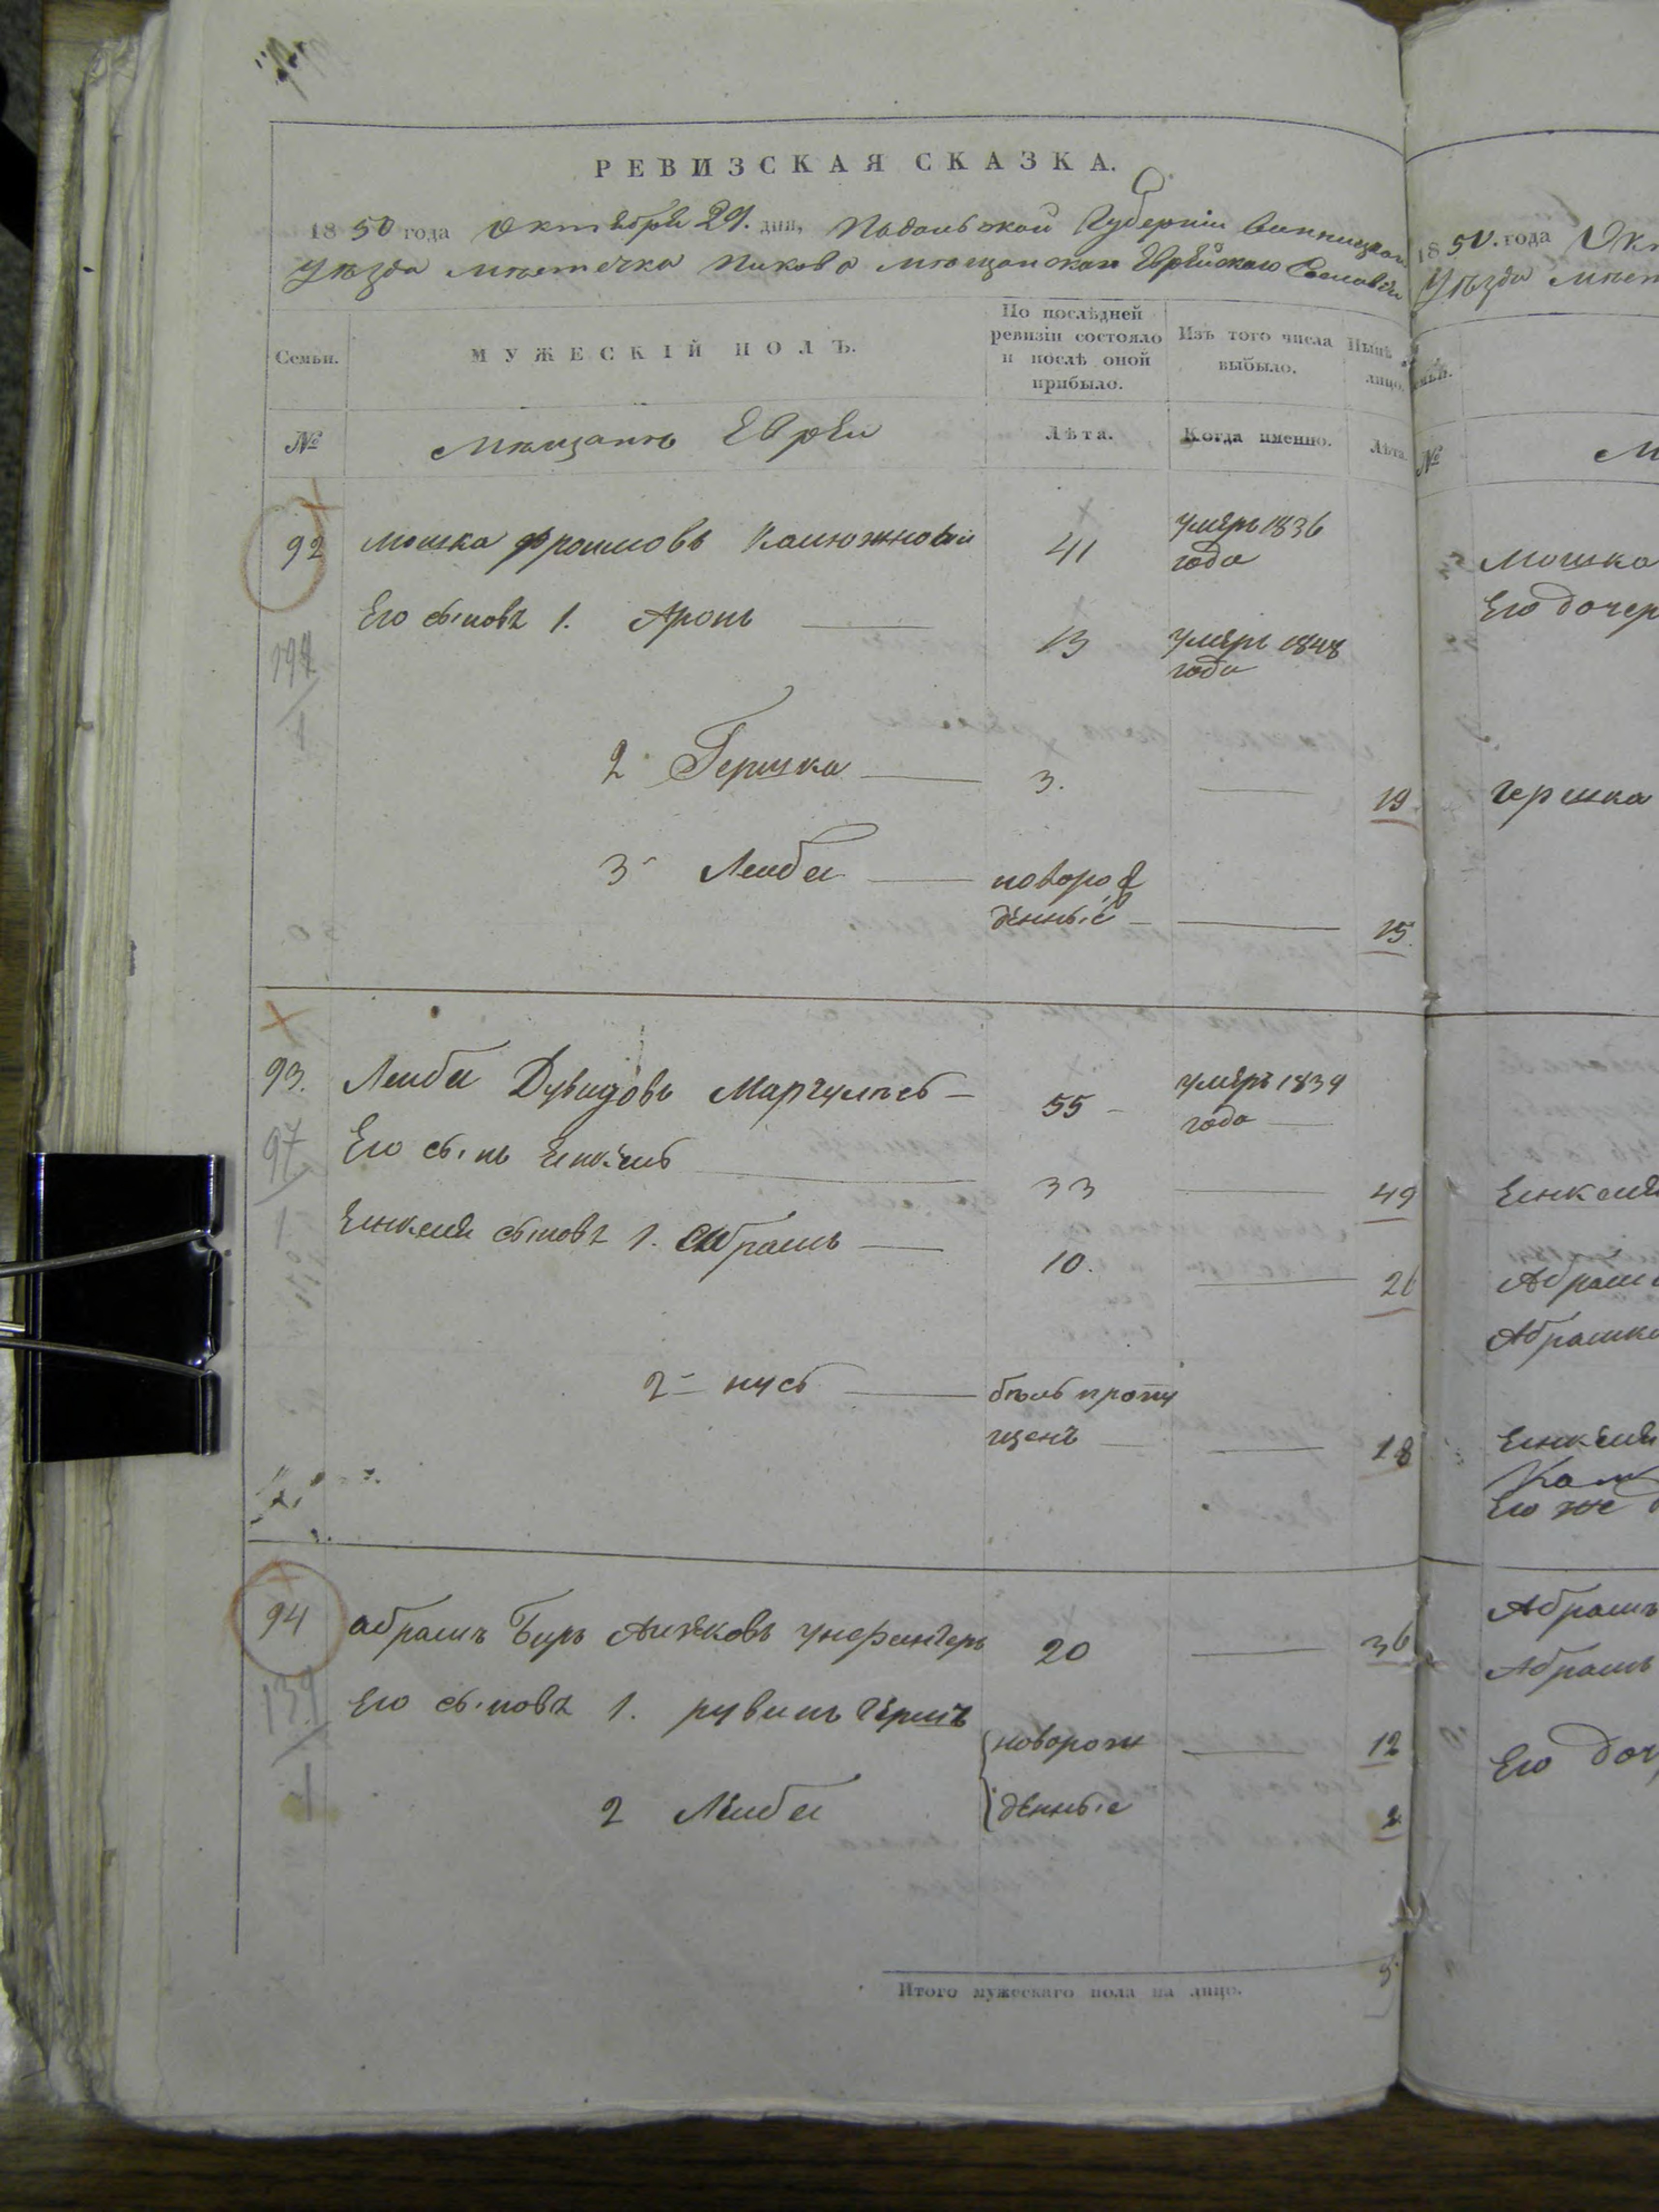 РЕВИЗСКАЯ СКАЗКА.
1850 года Октября 29. дня, Подольской Губерніи Винницкаго
Уѣзда мѣстечка Пикова мѣщанскаго Еврейскаго Сословія
Семьи.
МУЖЕСКІЙ ПОЛЪ.
По послѣдней ревизіи состояло и послѣ оной прибыло.
Изъ того числа выбыло.
Нынѣ на лицо.
№
Мѣщанъ Евреи
Лѣта.
Когда именно.
Лѣта.
92 Мошка Фроимовъ 41 умеръ 1836 года
Его сыновя 1. Аронъ 13 умеръ 1848 года
2 Гершка 3. 19
3 Лейба новорожденные 15.
93. Лейба Дувидовъ Маргулисъ 55 умеръ 1839 года
97
1
Его сынъ Енкель 33 49
Енкеля сыновя 1. Абрамъ 10. 26
2 нусь былъ пропущенъ 18
94 абрамъ Беръ Ицковъ унгерингеръ 20 36
139
1
Его сыновя 1. рувинъ Гершъ новорож 12
2 Лейба денные 2
Итого мужескаго пола на лицо.
1850. года Ок
Уѣзда мѣст
№
М
Мошка
Его дочер
Гершка
Енкеля
Абрам
Абрашка
Енкеля
Его же
Абрамъ
Абрамъ
Его доч